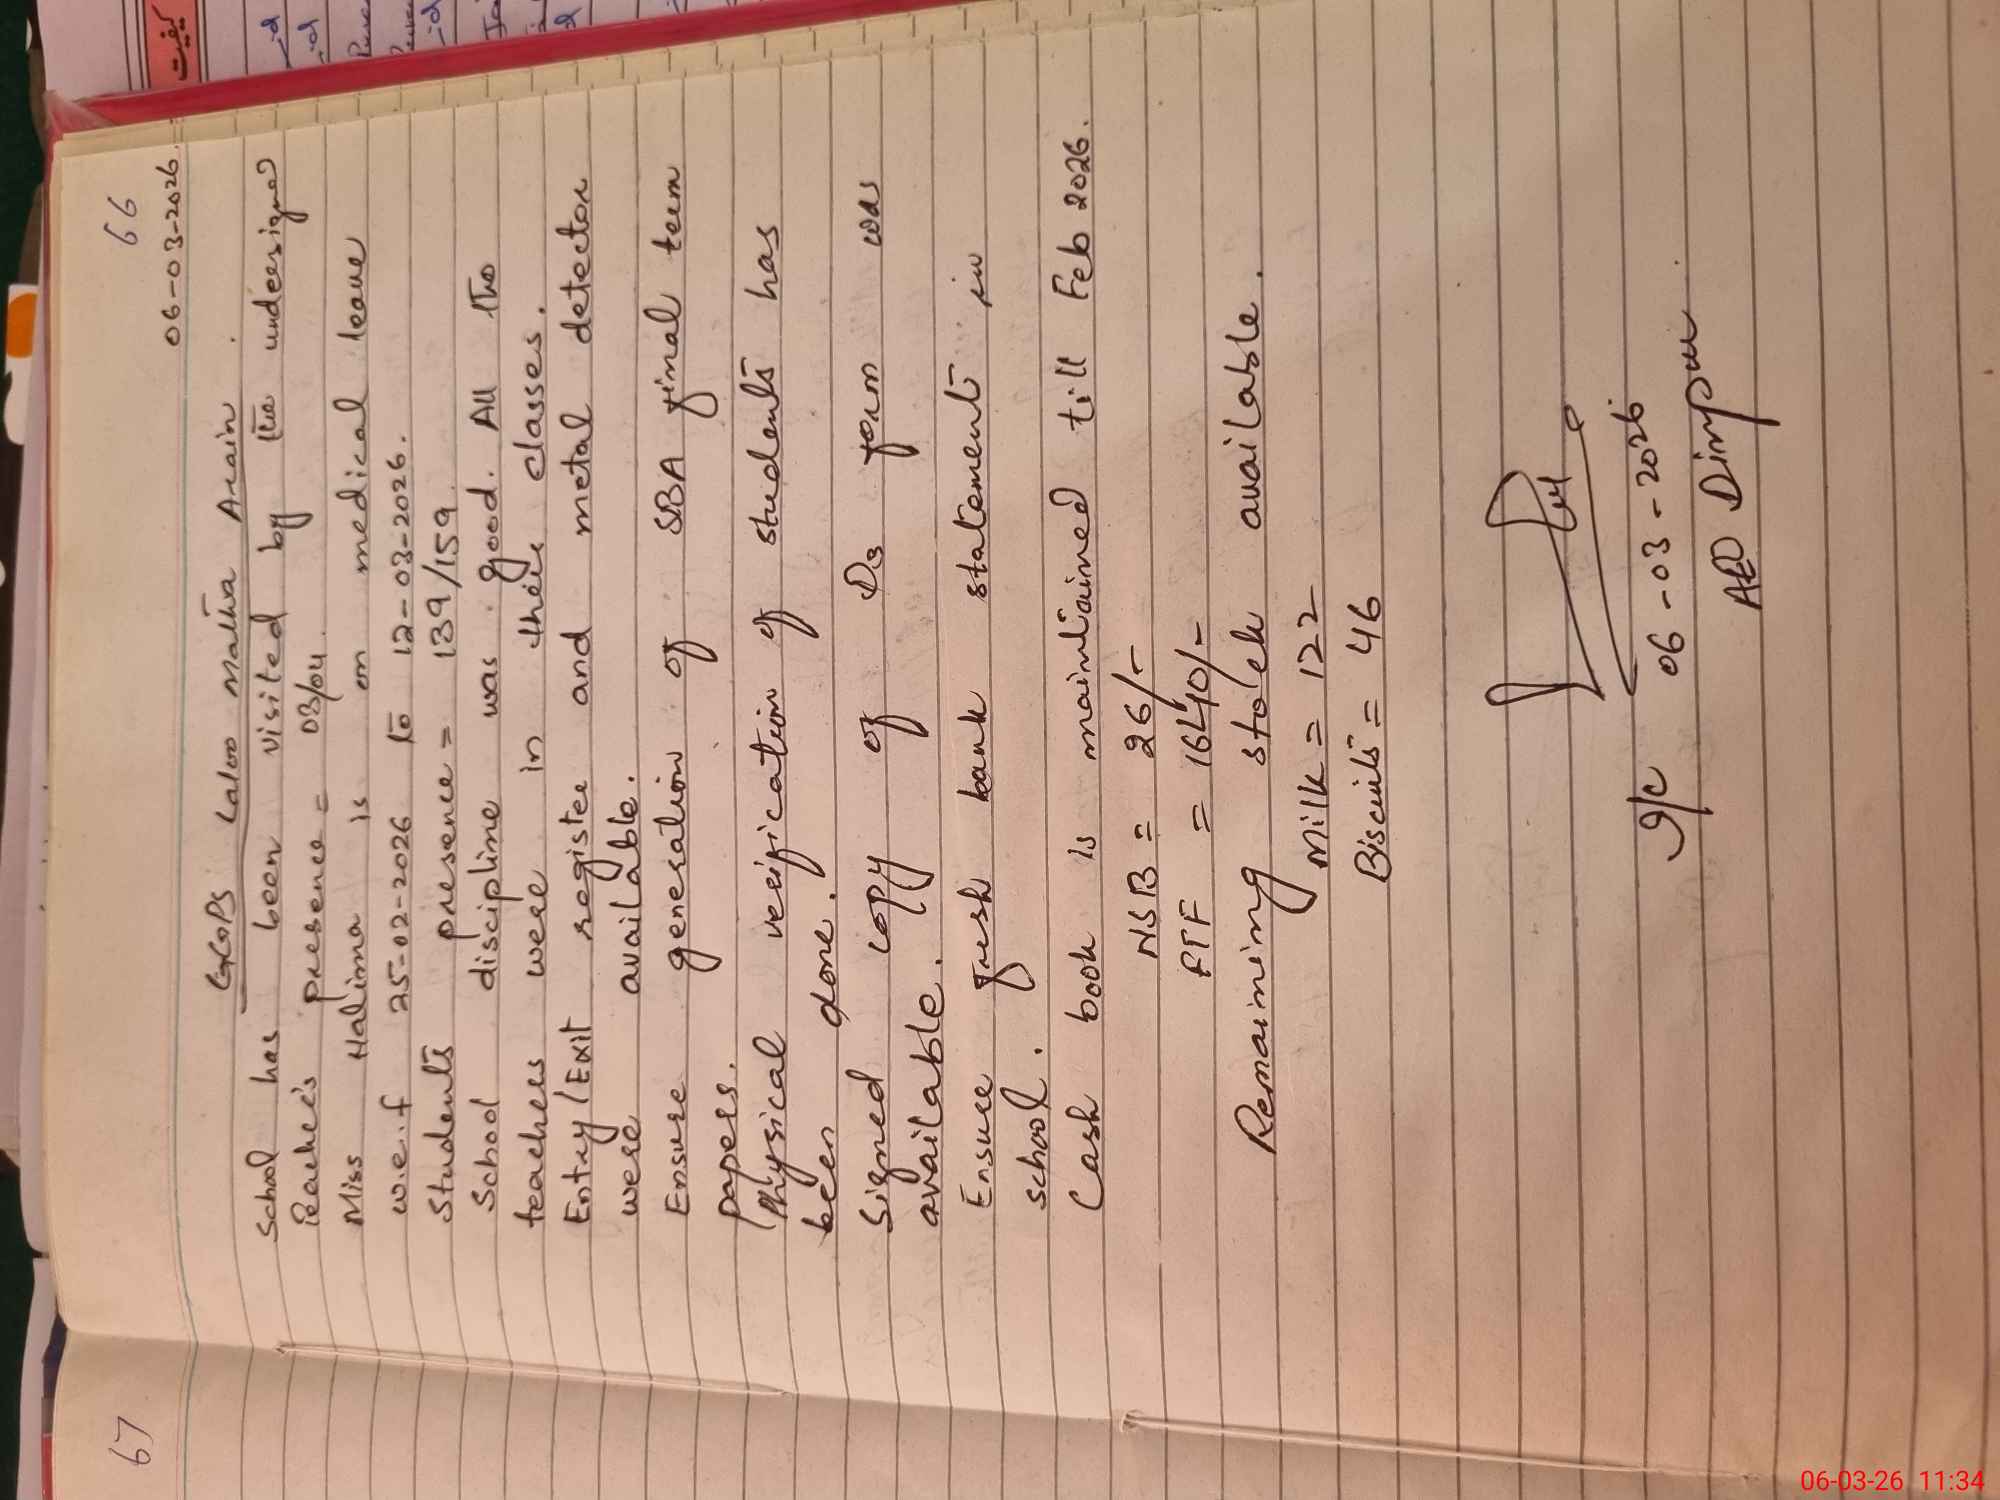 66
06-03-2026.
GGPS Laloo Maltha Arain.
School has been visited by the undersigned
Teacher's presence = 03/04.
Miss Halima is on medical leave
w.e.f 25-02-2026 to 12-03-2026.
Students presence = 139/159.
School discipline was good. All the
teachers were in their classes.
Entry/Exit register and metal detector
were available.
Ensure generation of SBA final term
papers.
Physical verification of students has
been done.
Signed copy of Ds form was
available.
Ensure fresh bank statement in
school.
Cash book is maintained till Feb 2026.
NSB = 26/-
FTF = 1640/-
Remaining stock available.
Milk = 122
Biscuits = 46
06-03-2026
AEO Dinpur
67
کیفیت
06-03-26 11:34